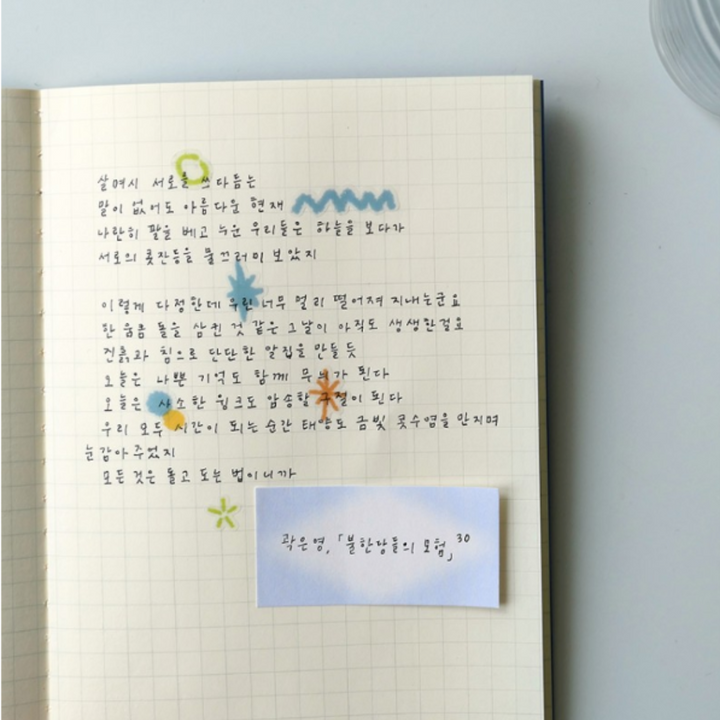 살며시 서로를 쓰다듬는
말이 없어도 아름다운 현재
나란히 팔을 베고 누운 우리들은 하늘을 보다가
서로의 콧잔등을 물끄러미 보았지
이렇게 다정한데 우린 너무 멀리 떨어져 지내는군요
한 움큼 돌을 삼킨 것 같은 그날이 아직도 생생한걸요
진흙과 침으로 단단한 알집을 만들 듯
오늘은 나쁜 기억도 함께 무늬가 된다
오늘은 사소한 윙크도 암송할 구절이 된다
우리 모두 시간이 되는 순간 태양도 금빛 콧수염을 만지며
눈감아 주었지
모든 것은 돌고 도는 법이니까
곽은영, 「불한당들의 모험」 30